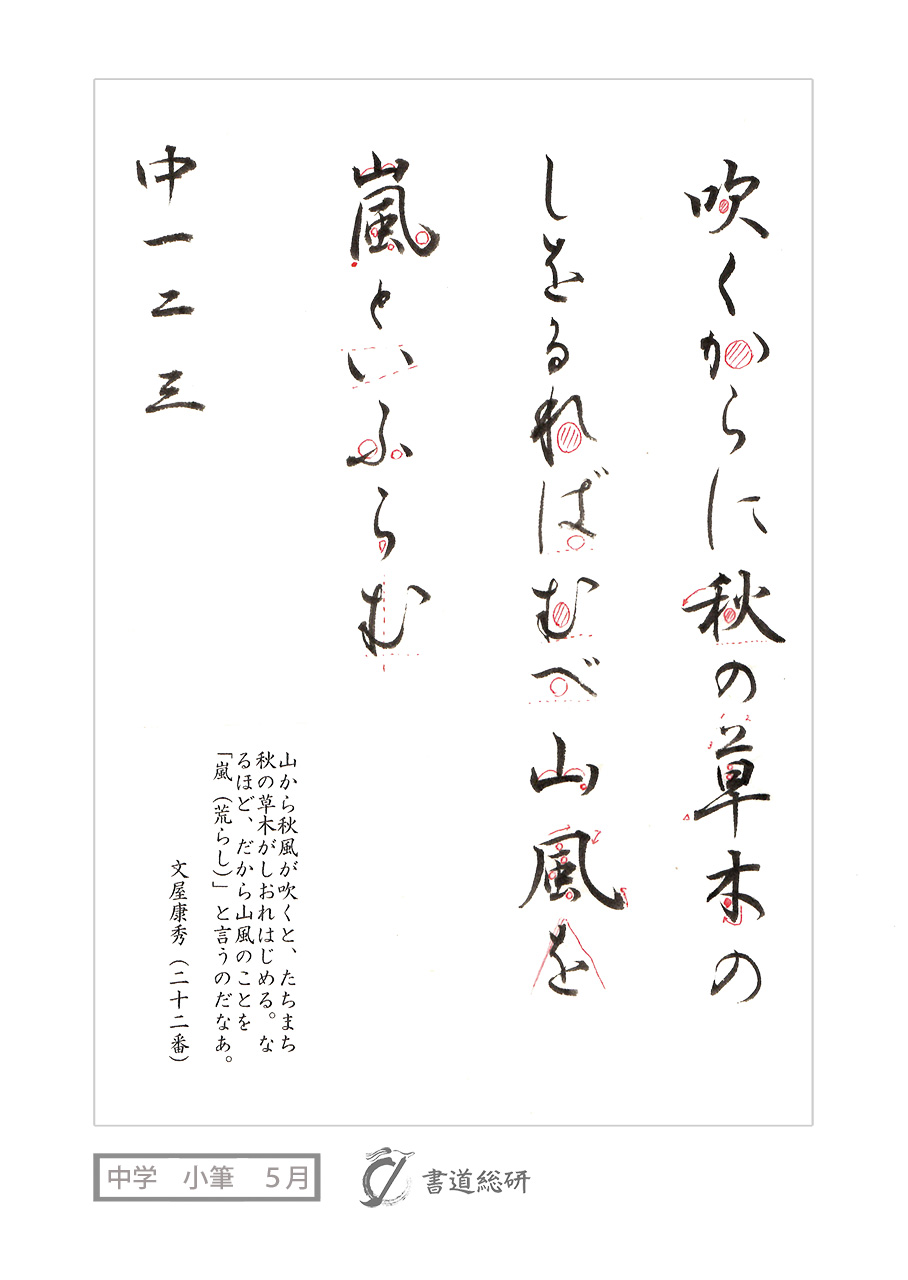 吹くからに秋の草木の
しをるればむべ山風を
嵐といふらむ
中一二三
山から秋風が吹くと、たちまち
秋の草木がしおれはじめる。な
るほど、だから山風のことを
「嵐(荒らし)」と言うのだなあ。
文屋康秀(二十二番)
中学 小筆 5月
書道総研